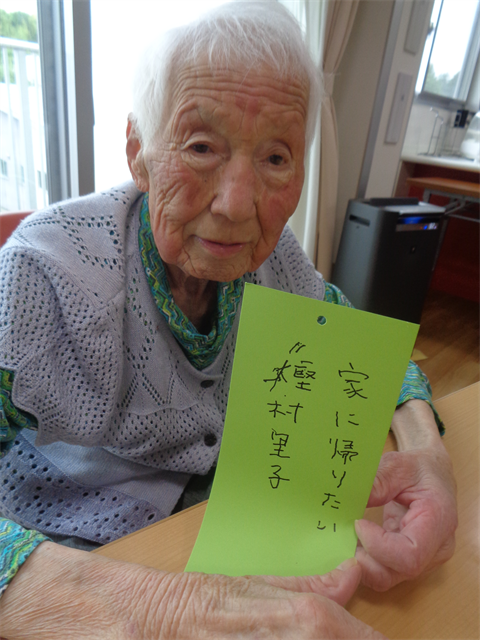 家に帰りたい
樫村里子